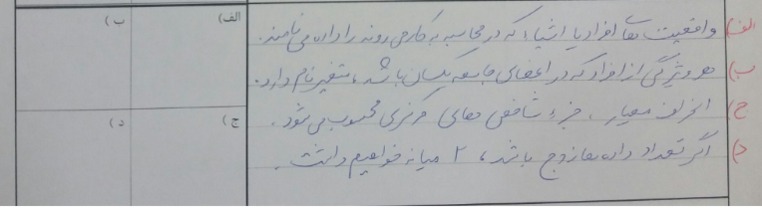 الف) واقعیت های افراد یا اشیاء که در محاسبه به کار می روند را داده می نامند.
ب) هر ویژگی از افراد که در اعضای جامعه یکسان باشد، متغیر نام دارد.
ج) انحراف معیار، جزء شاخص های مرکزی محسوب می شود.
د) اگر تعداد داده ها زوج باشد، ۲ میانه خواهیم داشت.
الف) ب)
ج) د)